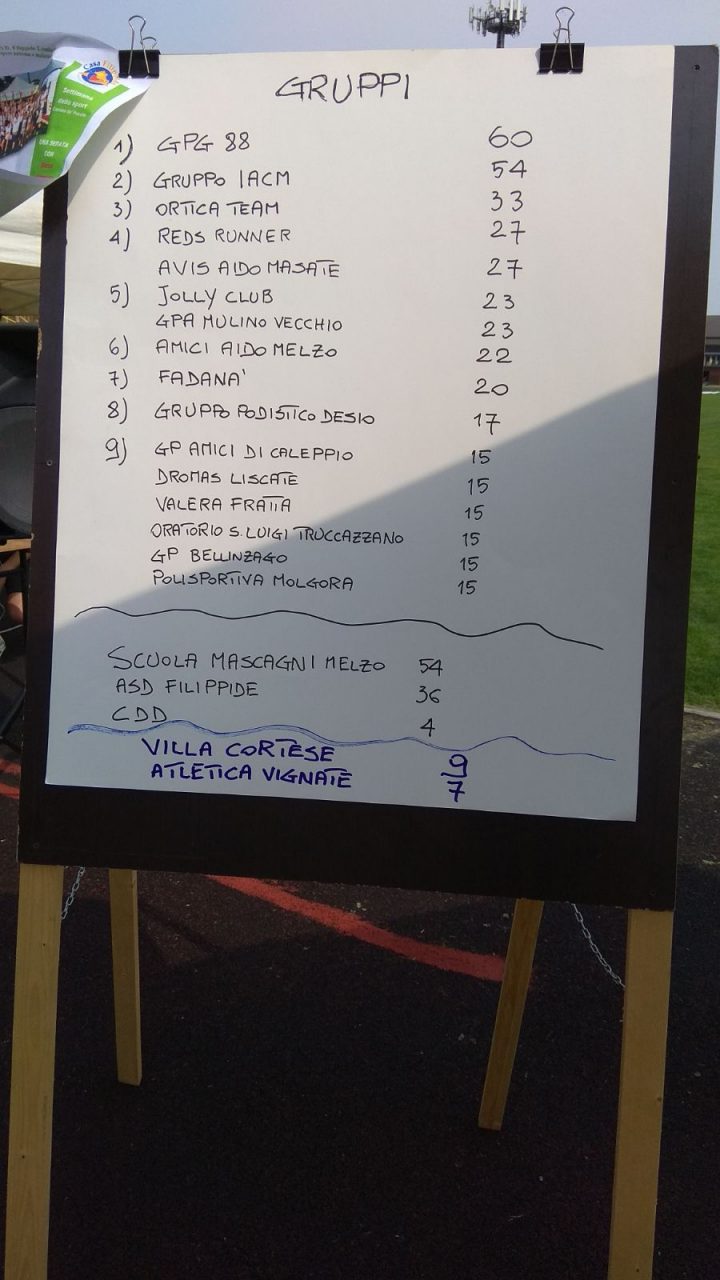 Casa Filippide
Settimana
dello sport
UNA SERATA
CON
GRUPPI
1) GPG 88 60
2) GRUPPO IACM 54
3) ORTICA TEAM 33
4) REDS RUNNER 27
AVIS AIDO MASATE 27
5) JOLLY CLUB 23
GPA MULINO VECCHIO 23
6) AMICI AIDO MELZO 22
7) FADANA' 20
8) GRUPPO PODISTICO DESIO 17
9) GP AMICI DI CALEPPIO 15
DROMAS LISCATE 15
VALERA FRATTA 15
ORATORIO S. LUIGI TRUCCAZZANO 15
GP BELLINZAGO 15
POLISPORTIVA MOLGORA 15
SCUOLA MASCAGNI MELZO 54
ASD FILIPPIDE 36
CDD 4
VILLA CORTESE 9
ATLETICA VIGNATE 7